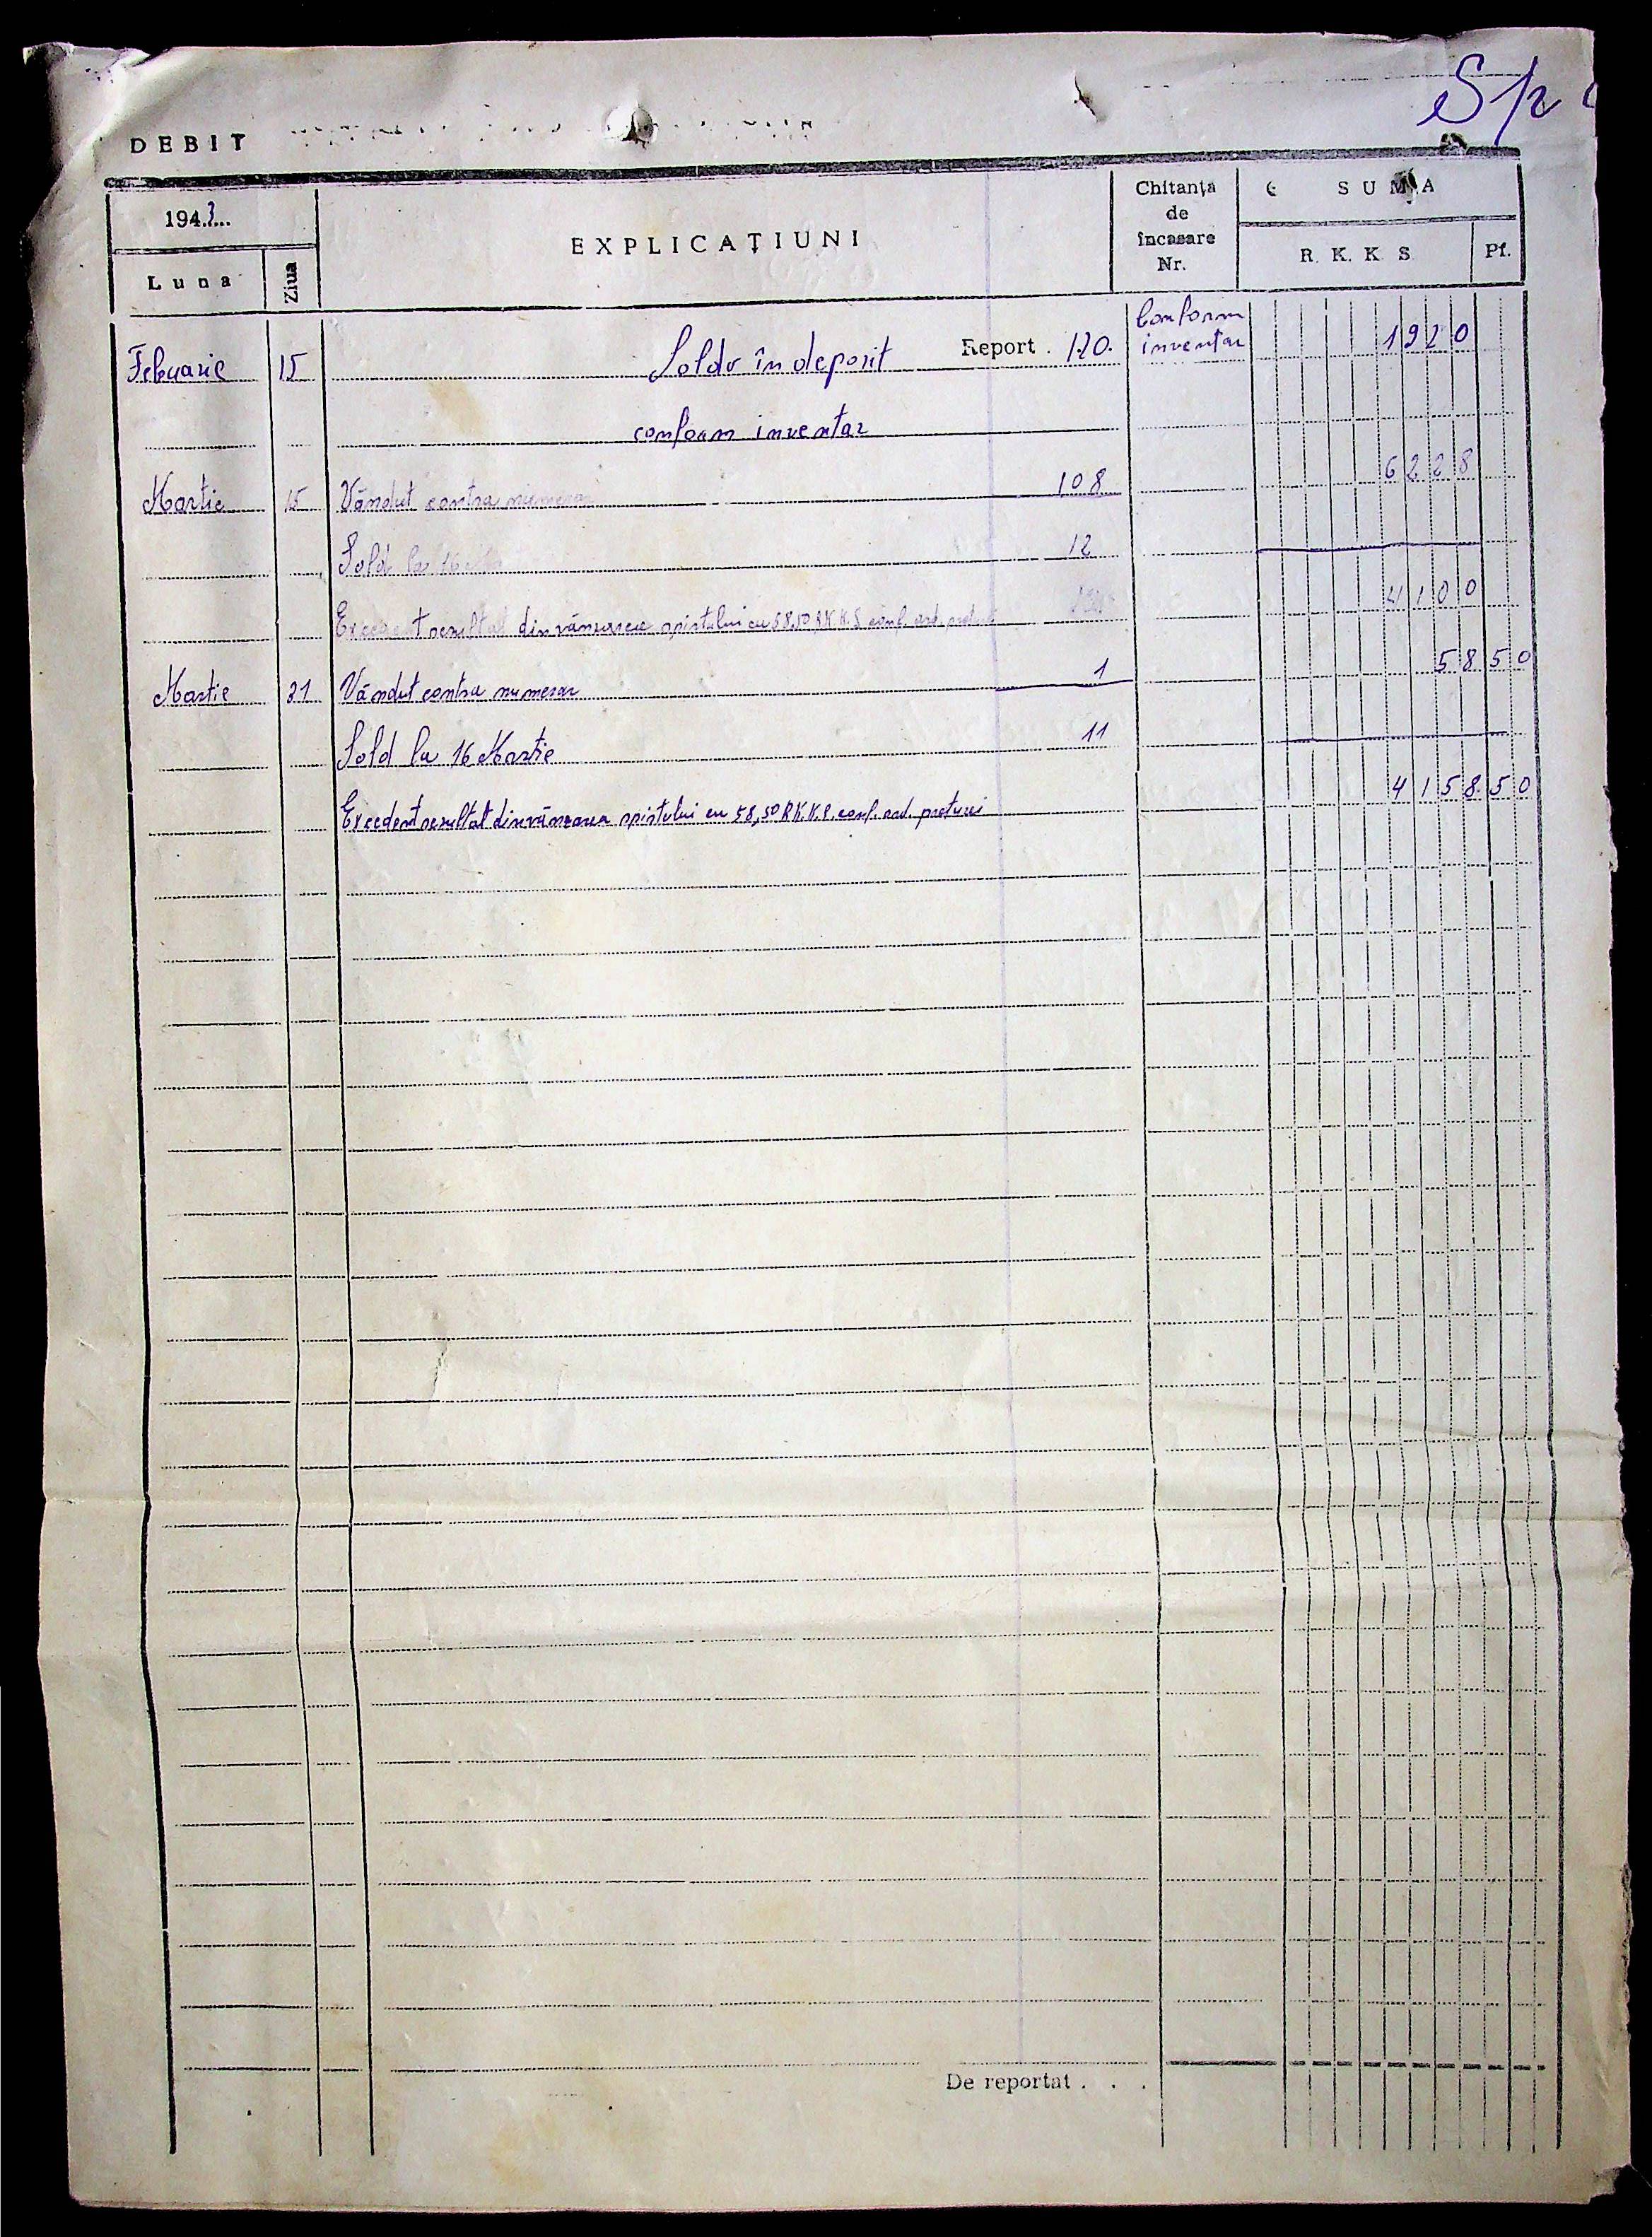 Sp
DEBIT
194.3...
Luna
Ziua
EXPLICAȚIUNI
Chitanța
de
încasare
Nr.
SUMA
R. K. K. S.
Pf.
Febuarie 15 Soldo în deposit Report . 120. Conform inventar 1920
conform inventar
Martie 15 Vândut contra numerar 108 6228
Sold la 16 12
Excedent rezultat din vânzarea spirtului cu 58,50 R.K.K.S conf. ord. 4100
Martie 31 Vândut contra numerar 1 58 50
Sold la 16 Martie 11
Excedent rezultat din vânzarea spirtului cu 58,50 R.K.K.S. conf. ord. 4158.50
De reportat . . .